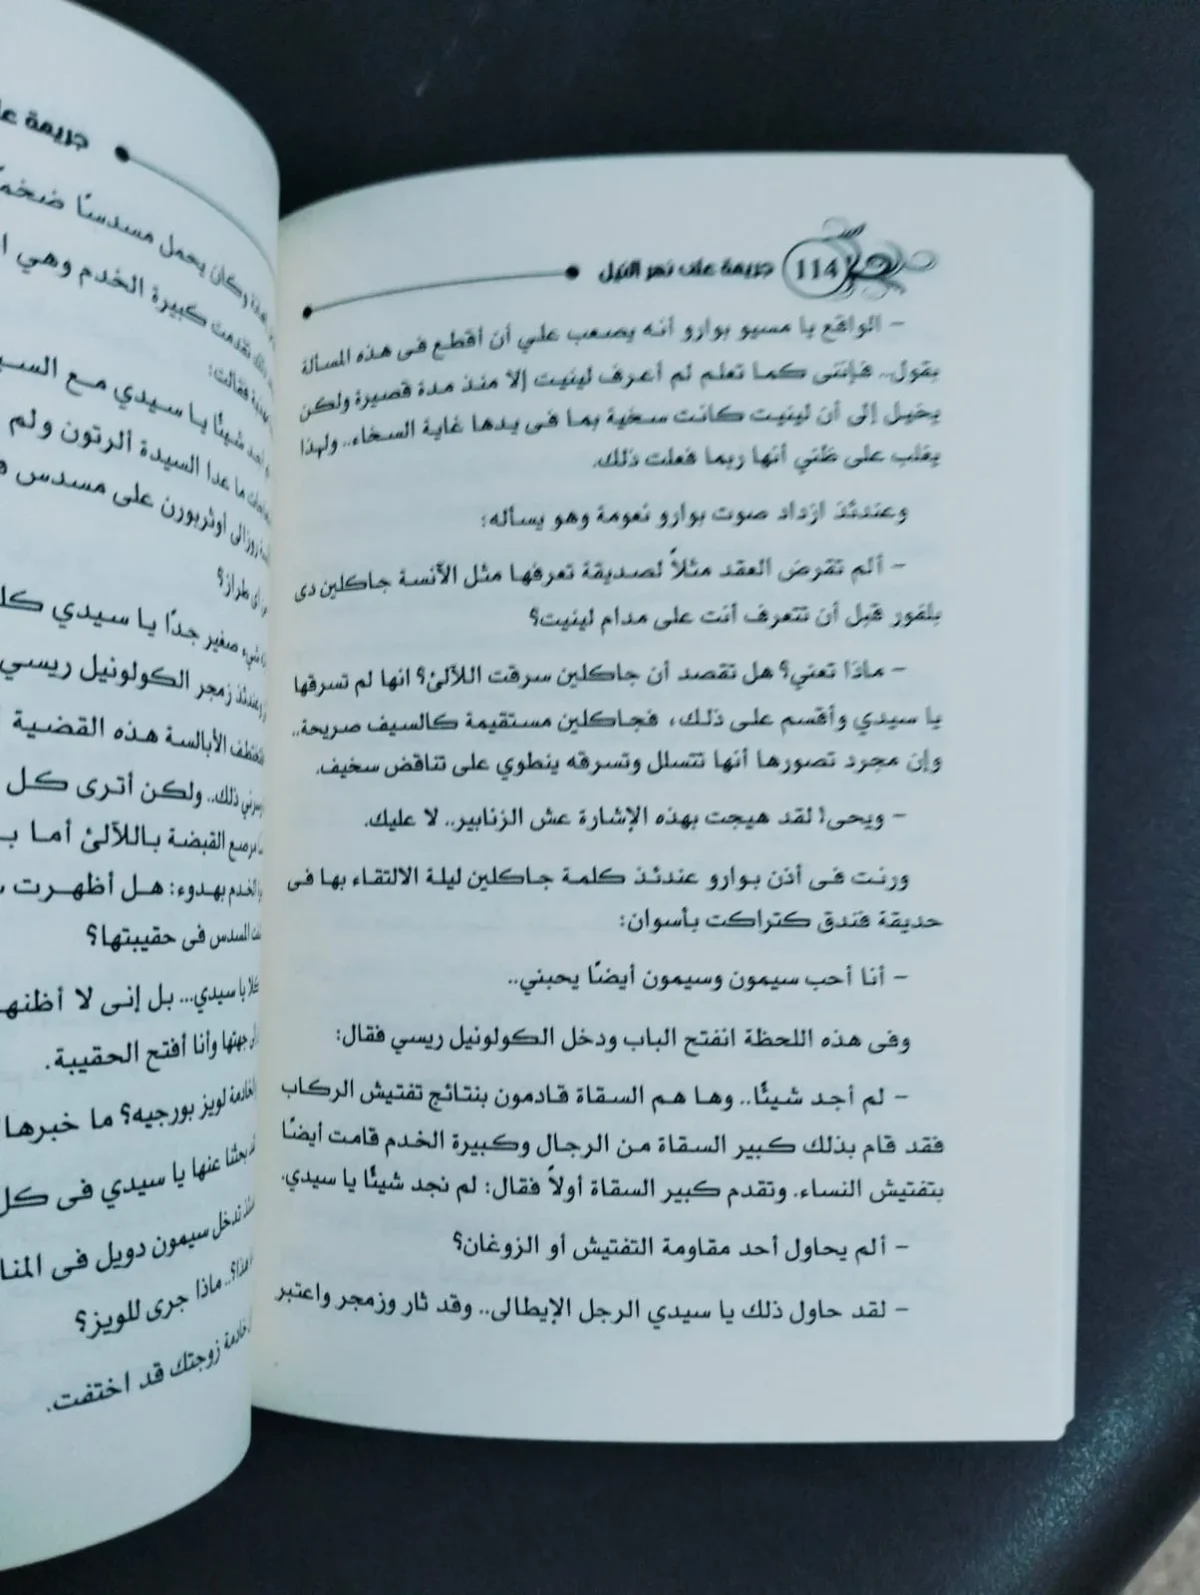 114 جريمة على نهر النيل
– الواقع يا مسيو بوارو أنه يصعب علي أن أقطع فى هذه المسألة
بقول.. فإننى كما تعلم لم أعرف لينيت إلا منذ مدة قصيرة ولكن
يخيل إلى أن لينيت كانت سخية بما فى يدها غاية السخاء.. ولهذا
يغلب على ظني أنها ربما فعلت ذلك.
وعندئذ ازداد صوت بوارو نعومة وهو يسأله:
– ألم تقرض العقد مثلاً لصديقة تعرفها مثل الآنسة جاكلين دى
بلفور قبل أن تتعرف أنت على مدام لينيت؟
– ماذا تعني؟ هل تقصد أن جاكلين سرقت اللآلئ؟ انها لم تسرقها
يا سيدي وأقسم على ذلك، فجاكلين مستقيمة كالسيف صريحة..
وإن مجرد تصورها أنها تتسلل وتسرقه ينطوي على تناقض سخيف.
– ويحى! لقد هيجت بهذه الإشارة عش الزنابير.. لا عليك.
ورنت فى أذن بوارو عندئذ كلمة جاكلين ليلة الالتقاء بها فى
حديقة فندق كتراكت بأسوان:
– أنا أحب سيمون وسيمون أيضًا يحبني..
وفى هذه اللحظة انفتح الباب ودخل الكولونيل ريسي فقال:
– لم أجد شيئًا.. وها هم السقاة قادمون بنتائج تفتيش الركاب
فقد قام بذلك كبير السقاة من الرجال وكبيرة الخدم قامت أيضًا
بتفتيش النساء. وتقدم كبير السقاة أولاً فقال: لم نجد شيئًا يا سيدي.
– ألم يحاول أحد مقاومة التفتيش أو الزوغان؟
– لقد حاول ذلك يا سيدي الرجل الإيطالى.. وقد ثار وزمجر واعتبر
جريمة
وكان يحمل مسدسًا
تقدمت كبيرة الخدم وهي
فقالت:
أحد شيئًا يا سيدي مع
ما عدا السيدة ألرتون ولم
روزالى أوتربورن على مسدس
أى طراز؟
شيء صغير جدًا يا سيدي
وعندئذ زمجر الكولونيل ريسي
الأبالسة هذه القضية
ذلك.. ولكن أترى كل
مرصع القبضة باللآلئ أما
الخدم بهدوء: هل أظهرت
المسدس فى حقيبتها؟
كلا يا سيدي... بل إنى لا
جهتها وأنا أفتح الحقيبة.
لويز بورجيه؟ ما خبرها
بحثنا عنها يا سيدي فى
تدخل سيمون دويل فى
ماذا جرى للويز؟
زوجتك قد اختفت.